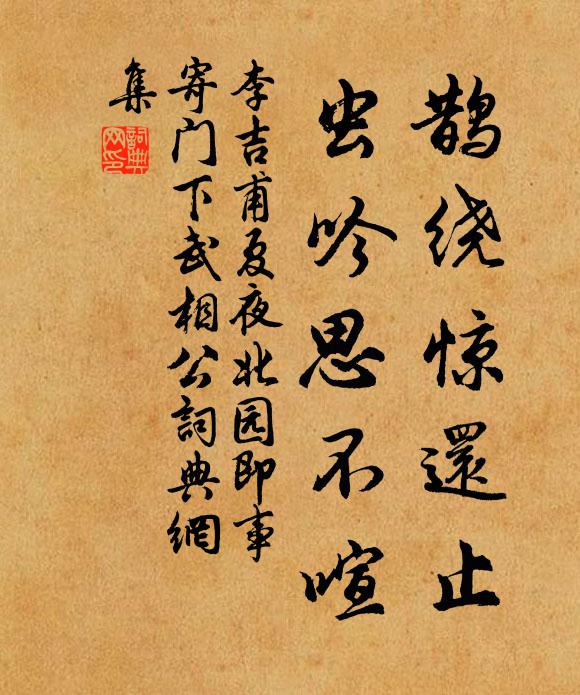 鹊绕惊還止
虫吟思不喧
李吉甫夏夜北园即事
寄门下武相公詞典網
集
詞典网印